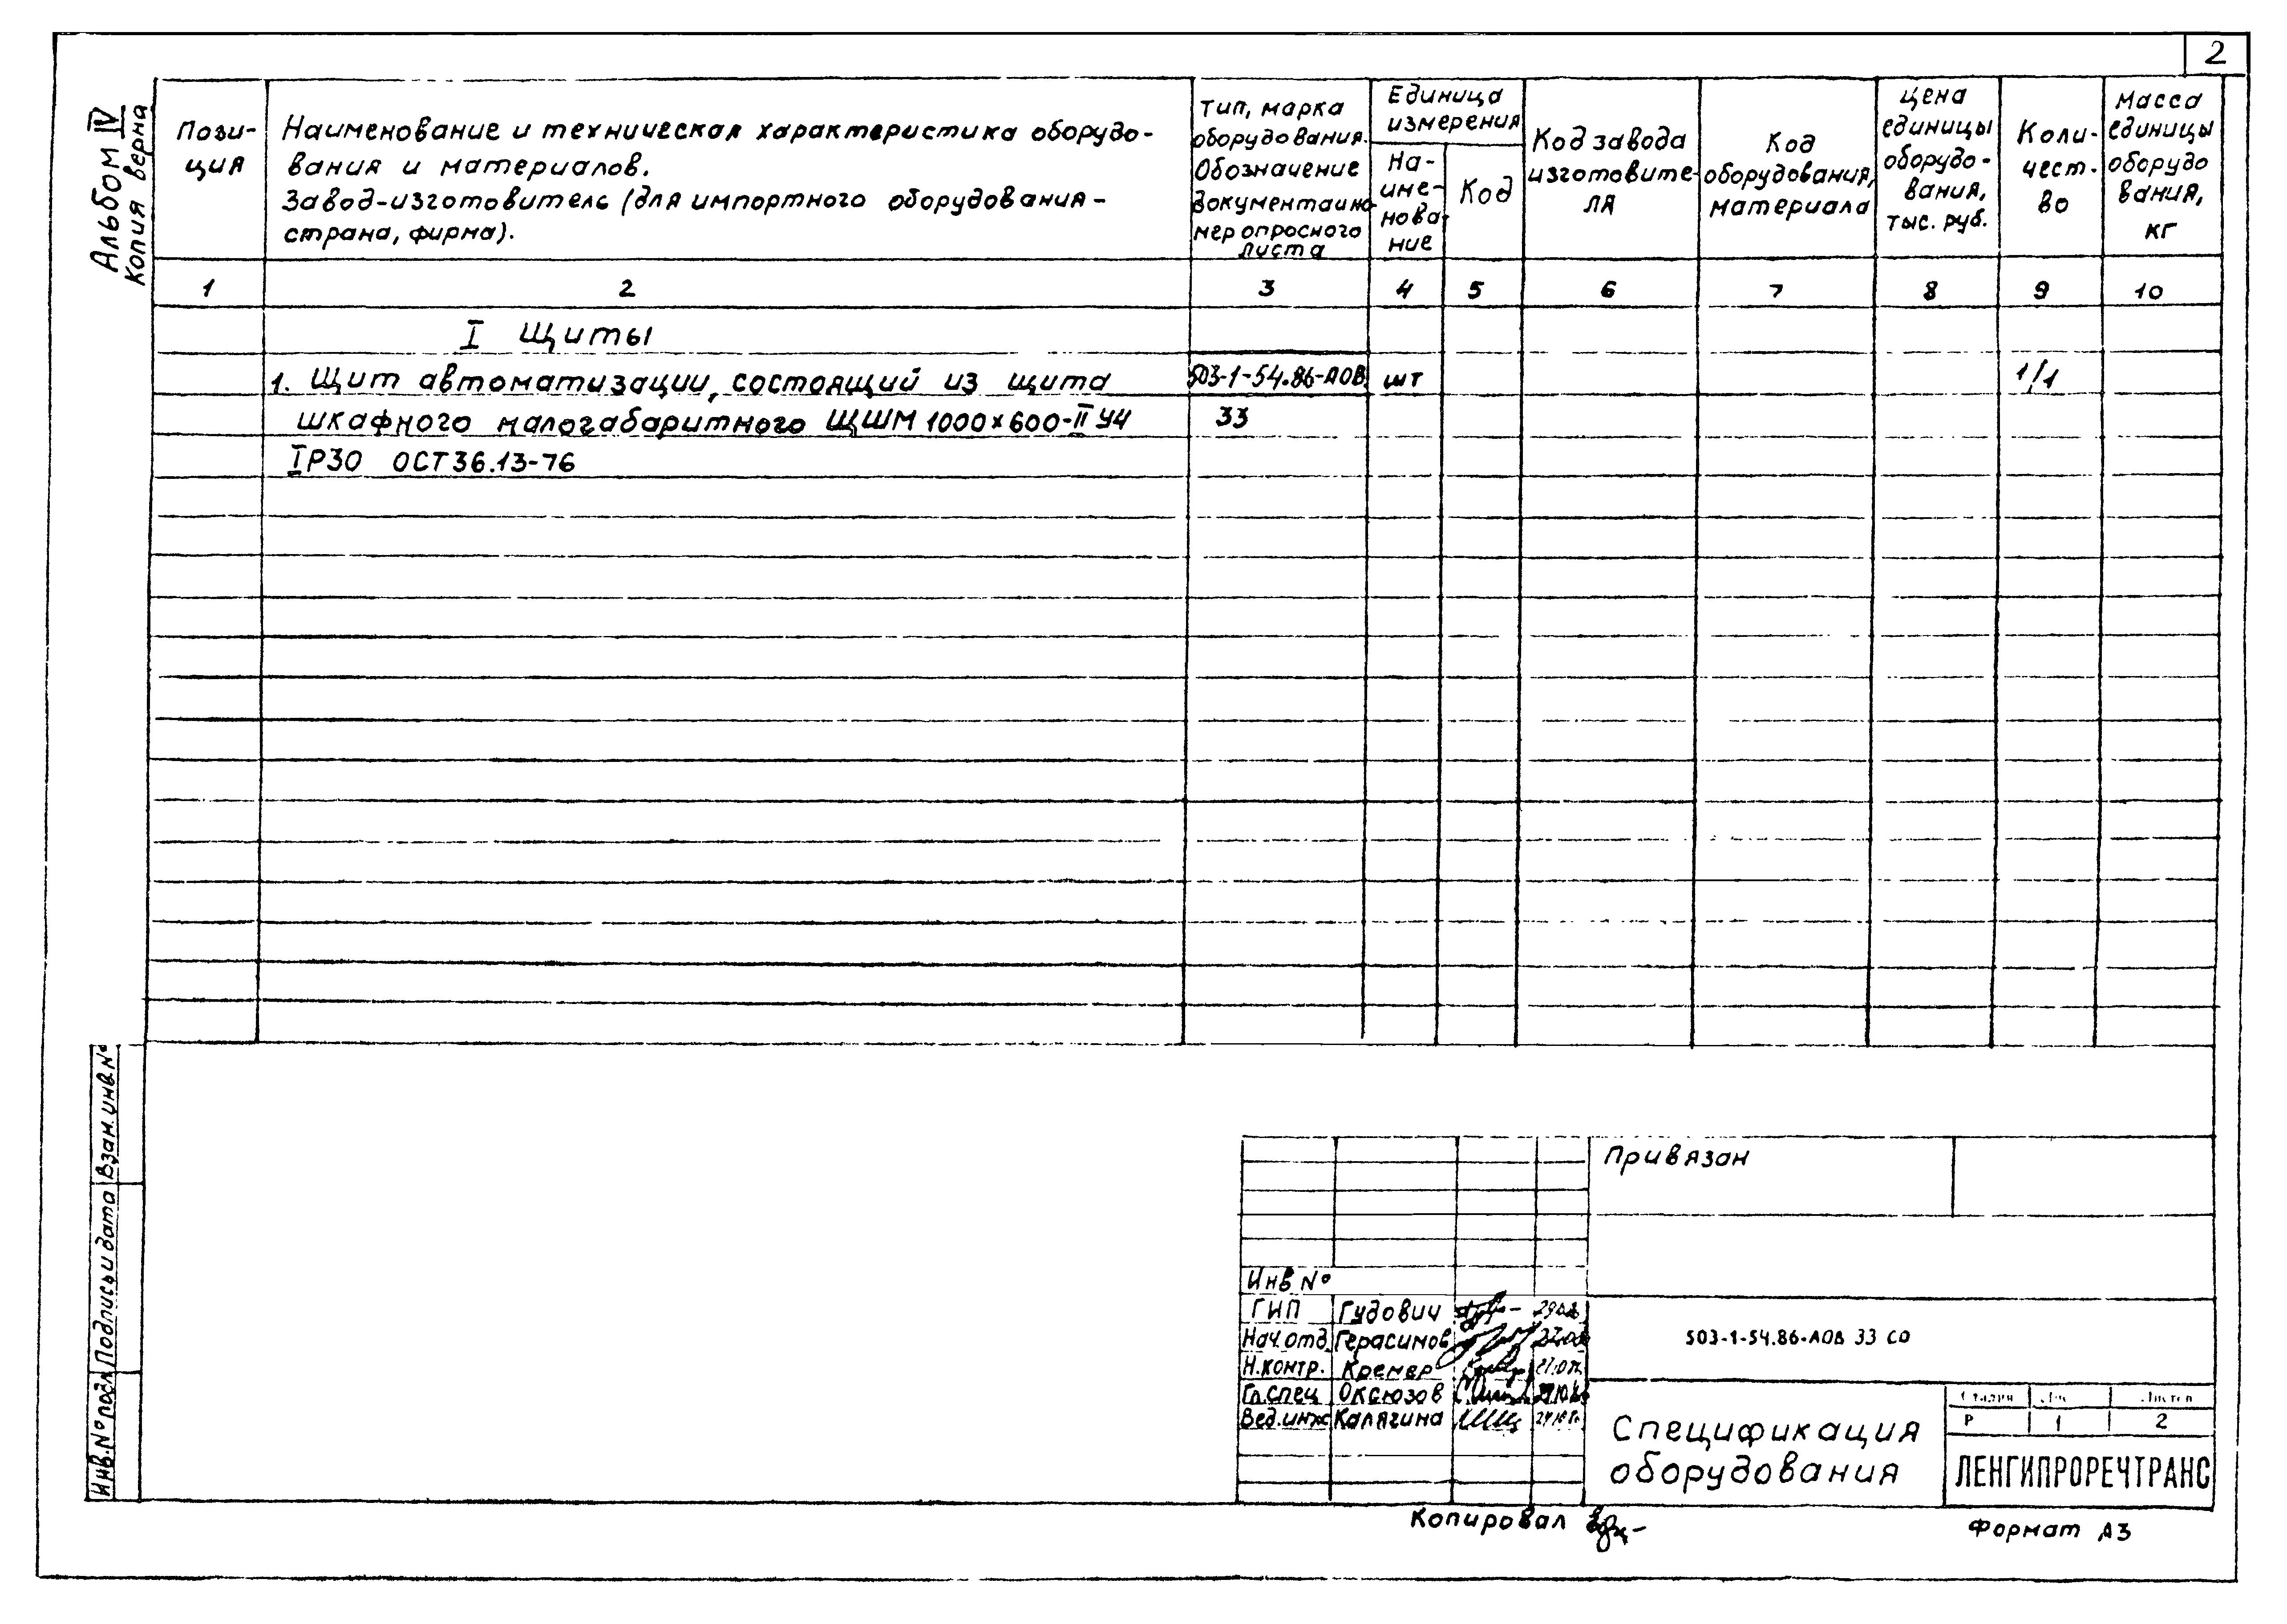 2
Альбом IV
Копия верна
Пози-
ция
Наименование и техническая характеристика оборудо-
вания и материалов.
Завод-изготовитель (для импортного оборудования-
страна, фирма).
Тип, марка
оборудования.
Обозначение
документа и но-
мер опросного
листа
Единица
измерения
На-
име-
нова-
ние
Код
Код завода
изготовите-
ля
Код
оборудования,
материала
Цена
единицы
оборудо-
вания,
тыс. руб.
Коли-
чест-
во
Масса
единицы
оборудо
вания,
кг
1 2 3 4 5 6 7 8 9 10
I Щиты
1. Щит автоматизации, состоящий из щита 503-1-54.86-АОВ шт 1/1
шкафного малогабаритного ЩШМ 1000х600-II У4 33
IР30 ОСТ 36.13-76
Взам. инв. №
Подпись и дата
Инв. № подл
Привязан
Инв №
ГИП Гудович
Нач. отд. Герасимов
Н.контр. Кремер
Гл.спец Оксюзов
Вед.инж Калягина
503-1-54.86-АОВ 33 СО
Спецификация
оборудования
Стадия Лис Листов
Р 1 2
ЛЕНГИПРОРЕЧТРАНС
Копировал
Формат А3